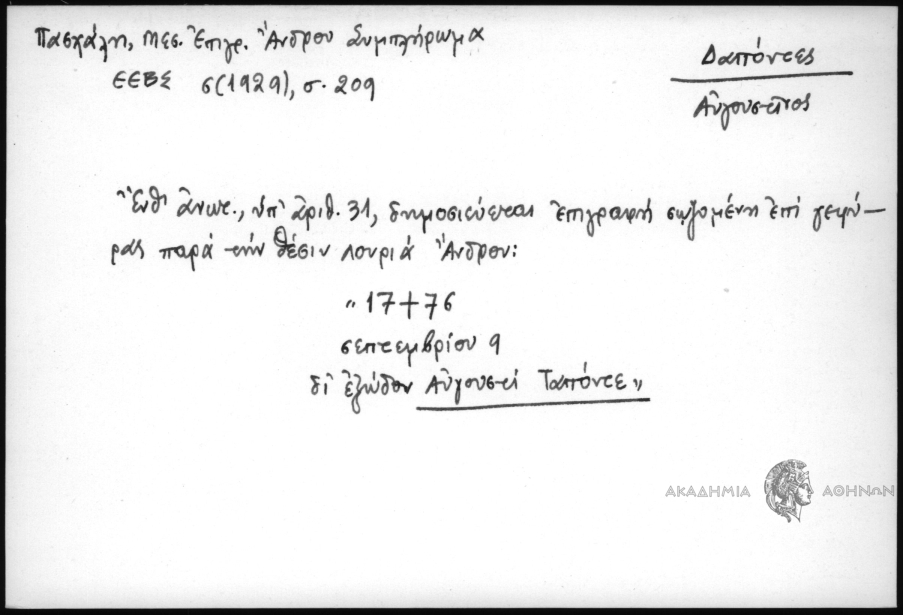 Πασχάλη, Μεσ. Ἐπιγρ. Ἄνδρου Συμπλήρωμα
ΕΕΒΣ ϛ(1929), σ. 209
Δαπόντες
Αὐγουστῖνος
Ἔνθ' ἄνωτ., ὑπ' ἀριθ. 31, δημοσιεύεται ἐπιγραφὴ σῳζομένη ἐπὶ γεφύ-
ρας παρὰ τὴν θέσιν Λουριά Ἄνδρου:
"17+76
σεπτεμβρίου 9
δι' ἐξώδον Αὐγουστῖ Ταπόντε"
ΑΚΑΔΗΜΙΑ ΑΘΗΝΩΝ